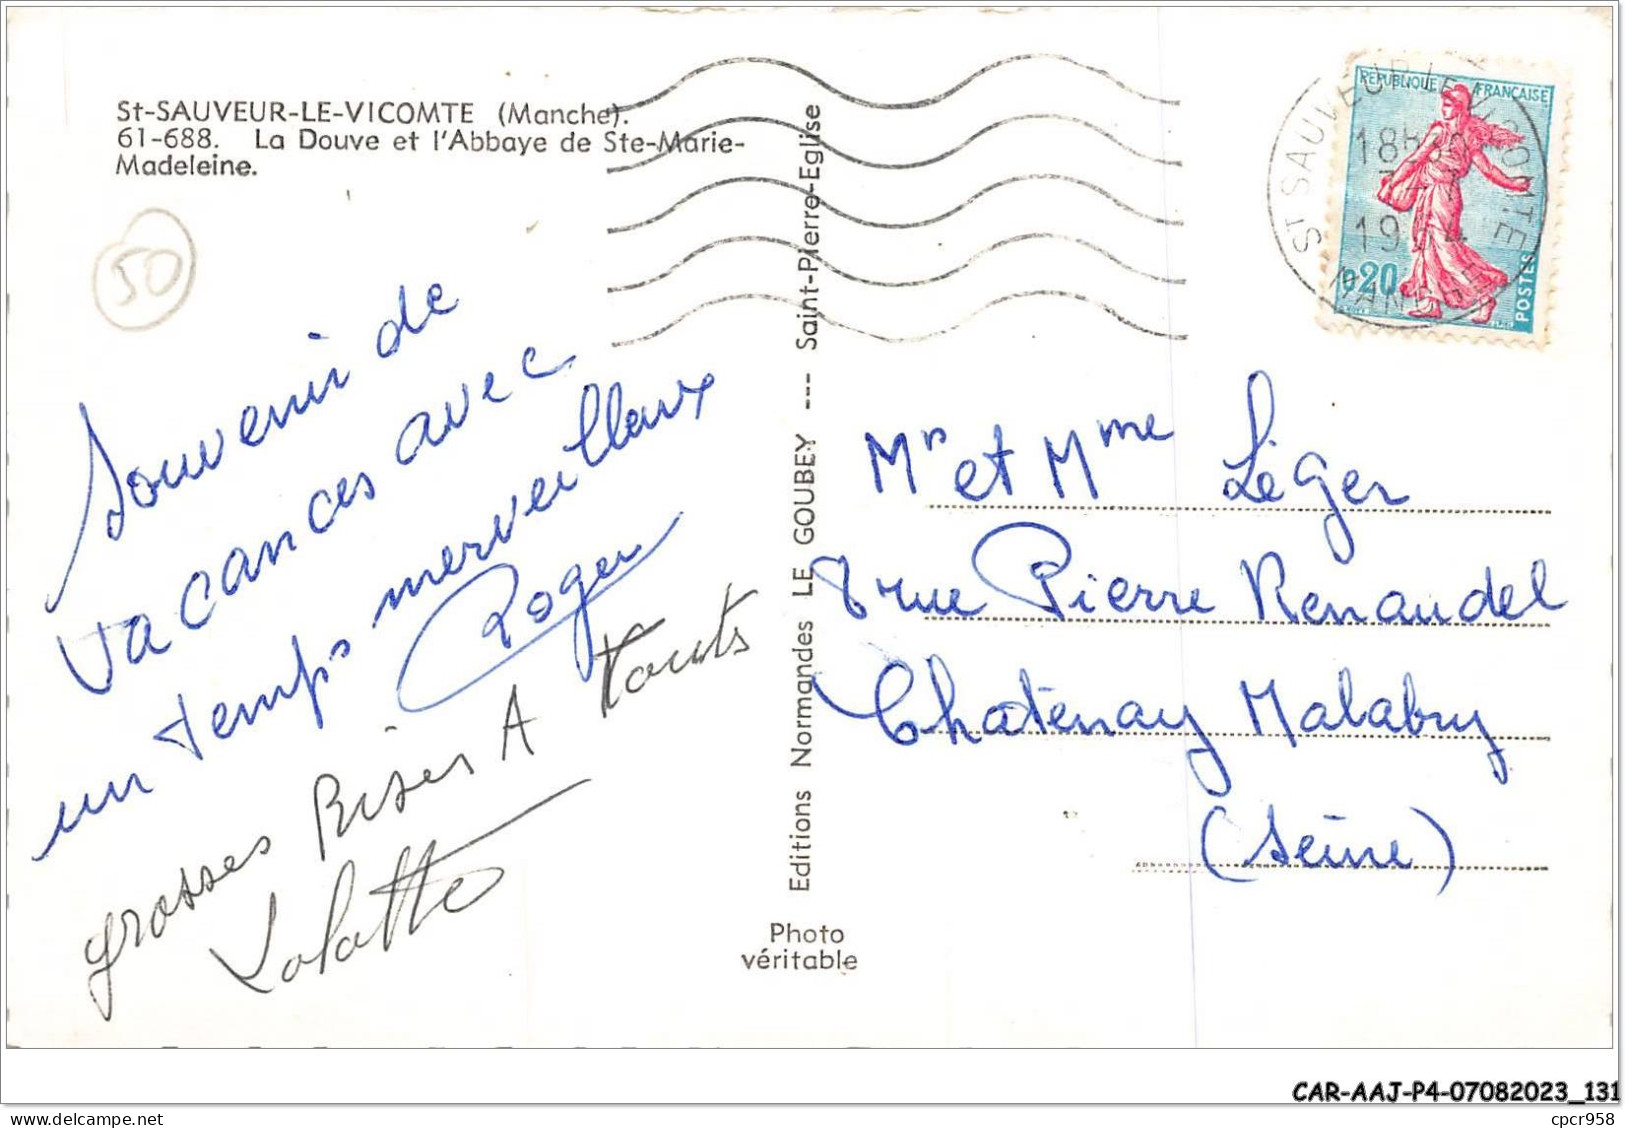 St-SAUVEUR-LE-VICOMTE (Manche).
61-688. La Douve et l'Abbaye de Ste-Marie-
Madeleine.
50
Souvenir de
vacances avec
un temps merveilleux
Roger
grosses Bises A Touts
Lolotte
Editions Normandes LE GOUBEY --- Saint-Pierre-Eglise
Photo
véritable
REPUBLIQUE FRANÇAISE
0,20
POSTES
ST SAUVEUR-LE-VICOMTE
MANCHE
18H30
Mr et Mme Léger
8 rue Pierre Renaudel
Chatenay Malabry
(Seine)
CAR-AAJ-P4-07082023_131
cpcr958